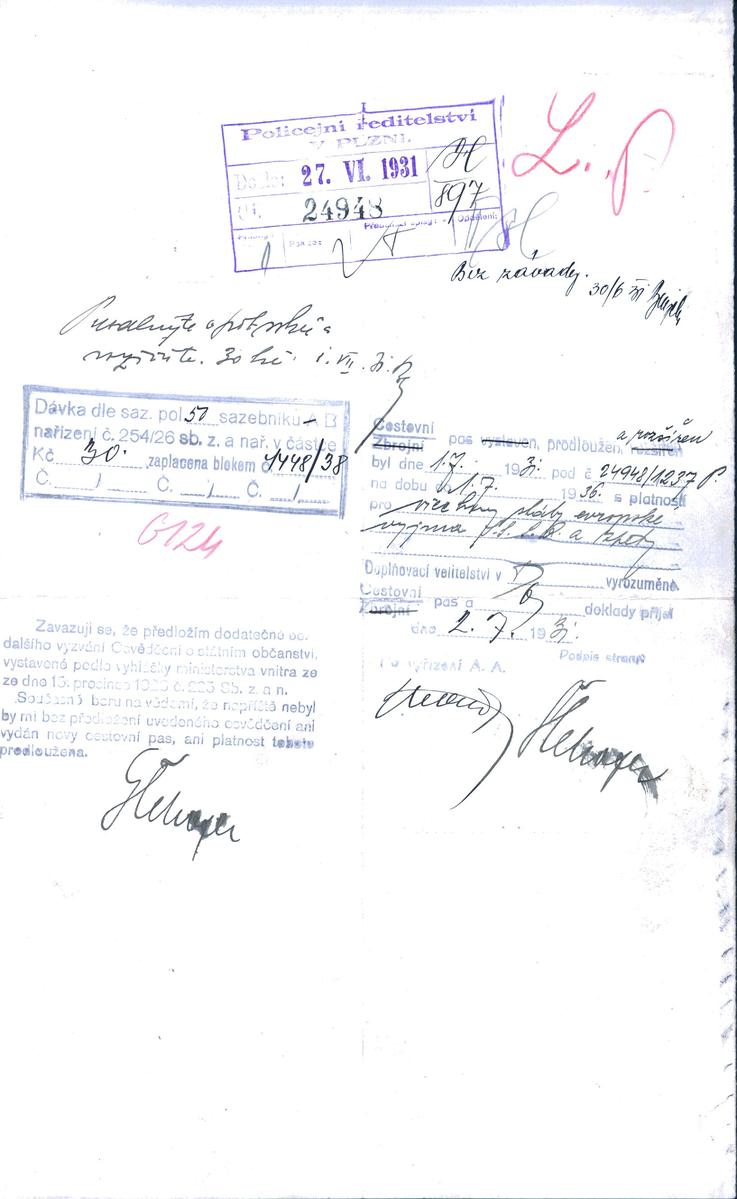 Policejní ředitelství
V PLZNI.
Došlo: 27. VI. 1931
Čj. 24948
897
L. P.
Bez závady. 30/6 31
30 kč. 1. VII. 31.
Dávka dle saz. pol 50 sazebníku A B
nařízení č. 254/26 sb. z. a nař. v částce
Kč 30.- zaplacena blokem č. 1448/38
Č. / Č. / Č. /
G124
Cestovní
Zbrojní pas vystaven, prodloužen, a rozšířen rozšířen
byl dne 1.7. 1931. pod č 24948/1237 P.
na dobu 1.7. 1936. s platností
pro všechny státy evropské
vyjma S.S.S.R. a
Doplňovací velitelství v P vyrozuměno.
Cestovní
Zbrojní pas a doklady přijal
dne 2. 7. 1931.
Podpis strany
Po vyřízení A. A.
Zavazuji se, že předložím dodatečně do
dalšího vyzvání Osvědčení o státním občanství,
vystavené podle vyhlášky ministerstva vnitra ze
ze dne 15. prosince 1928 č. 225 Sb. z. a n.
Současně beru na vědomí, že napříště nebyl
by mi bez předložení uvedeného osvědčení ani
vydán nový cestovní pas, ani platnost tohoto
predloužena.